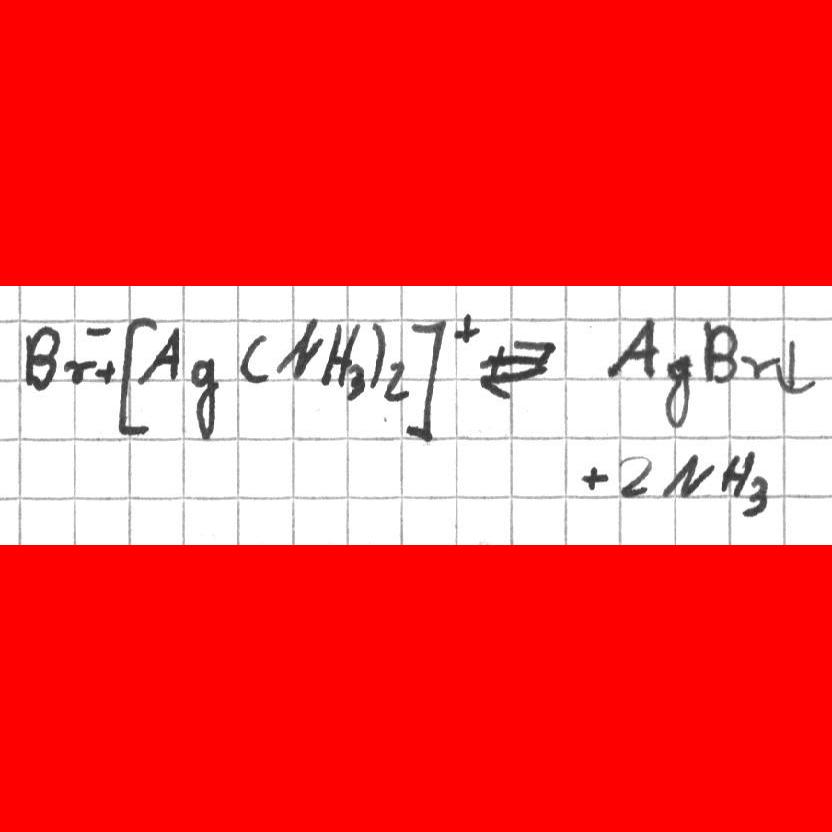 Br⁻+[Ag(NH₃)₂]⁺ ⇄ AgBr↓
+2NH₃